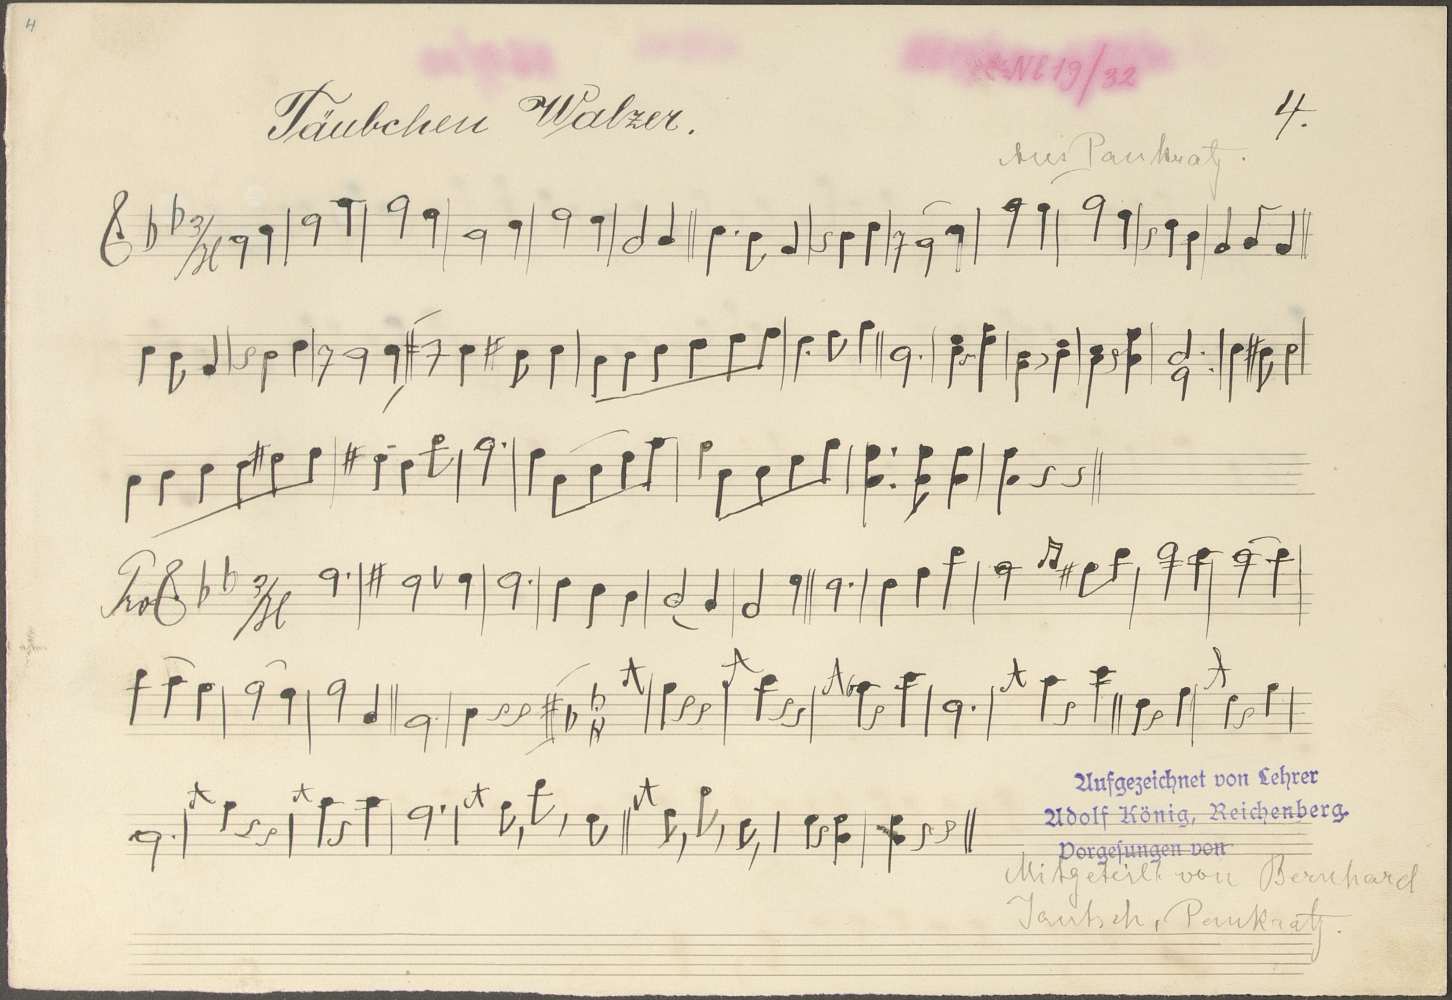 4
№ 19/32
Täubchen Walzer.
4.
Aus Pankratz.
3/4
Trio 3/4
Aufgezeichnet von Lehrer
Adolf König, Reichenberg.
Vorgesungen von
Mitgeteilt von Bernhard
Jantsch, Pankratz.